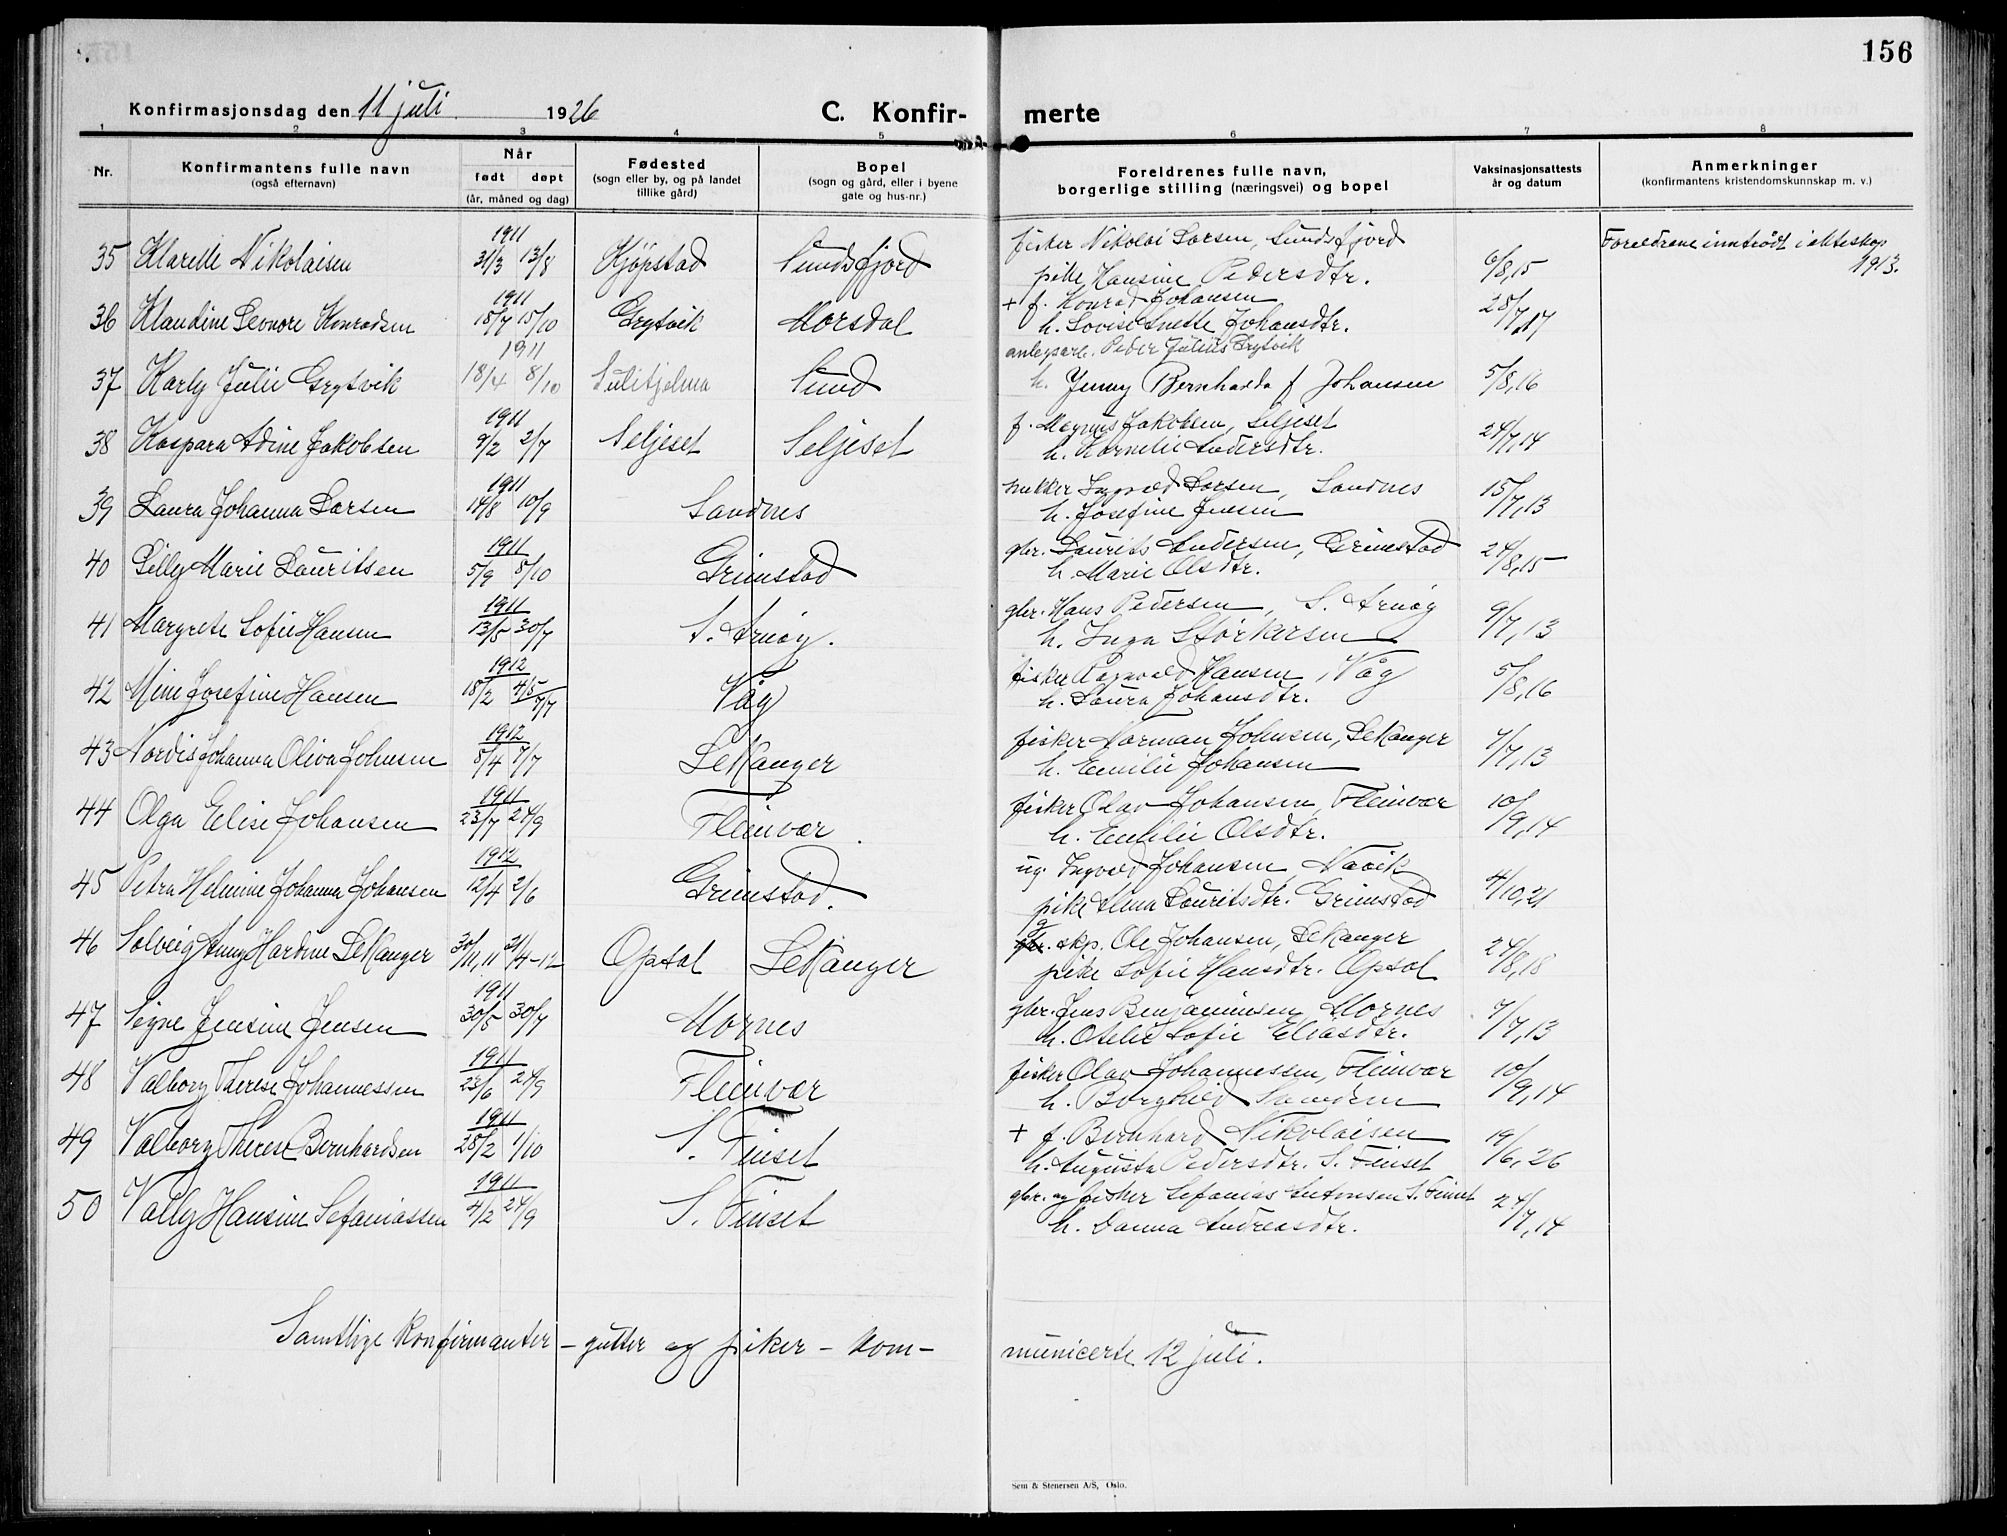 156
Konfirmasjonsdag den 11 juli 1926
C. Konfir- merte
1 2 3 4 5 6 7 8
Nr.
Konfirmantens fulle navn
(også efternavn)
Når
født døpt
(år, måned og dag)
Fødested
(sogn eller by, og på landet
tillike gård)
Bopel
(sogn og gård, eller i byene
gate og hus-nr.)
Foreldrenes fulle navn,
borgerlige stilling (næringsvei) og bopel
Vaksinasjonsattests
år og datum
Anmerkninger
(konfirmantens kristendomskunnskap m. v.)
1911 fisker Nikolai Larsen, Sundsfjord Foreldrene inntrådt i ekteskap
35 Klarelle Nikolaisen 31/3 13/8 Kjøpstad Sundsfjord pike Hansine Pedersdtr. 6/8,15 1913.
1911 + f. Konrad Johansen
36 Klaudine Leonore Konradsen 18/7 15/10 Grytvik Morsdal h. Lovise Anette Johansdtr. 28/7,17
1911 anlegsarb. Peder Julius Grytvik
37 Karly Julie Grytvik 18/4 8/10 Sulitjelma Sund h. Jenny Bernharda f Johansen 5/8,16
1911 f. Magnus Jakobsen, Seljeset
38 Kaspara Adine Jakobsen 9/2 2/7 Seljeset Seljeset h. Kornelie Andersdtr. 24/7,14
1911 Ingvald Larsen, Sandnes
39 Laura Johanna Larsen 14/8 10/9 Sandnes h. Josefine Jensen 15/7,13
1911 gbr. Laurits Andersen, Grimstad
40 Lilly Marie Lauritsen 5/9 8/10 Grimstad h. Marie Olsdtr. 24/8,15
1911 gbr. Hans Pedersen, S. Arnøy
41 Margrete Sofie Hansen 13/5 30/7 S. Arnøy. h. Inga Størkersen 9/7,13
1912 fisker Ragnvald Hansen, Våg
42 Mine Josefine Hansen 18/2 4/5 7/7 Våg h. Laura Johansdtr. 5/8,16
1912 fisker Norman Johnsen, Lekanger
43 Nordis Johanna Oliva Johnsen 5/4 7/7 Lekanger h. Emilie Johansen 7/7,13
1911 fisker Olav Johansen, Fleinvær
44 Olga Elise Johansen 23/7 24/9 Fleinvær. h. Emilie Olsdtr. 10/9,14
1912 ug. Ingvald Johansen, Navik
45 Petra Helmine Johanna Johansen 12/4 2/6 Grimstad. pike Alma Lauritsdtr. Grimstad 4/10,21
gbr. skp. Ole Johansen, Lekanger
46 Solveig Anny Hardine Lekanger 30/11,11 21/4-12 Opsal Lekanger pike Sofie Hansdtr. Opsal 24/8,18
1911 gbr. Jens Benjaminsen, Mornes
47 Signe Jensine Jensen 30/5 30/7 Mornes h. Otelie Sofie Eliasdtr. 7/7,13
1911 fisker Olav Johannessen, Fleinvær
48 Valborg Therese Johannessen 23/6 24/9 Fleinvær h. Borghild 10/9,14
1911 + f. Bernhard Nikolaisen
49 Valborg Therese Bernhardsen 28/2 1/10 S. Finset h. Augusta Pedersdtr. S. Finset 19/6,26
1911 gbr. og fisker Sefanias Antonsen S. Finset
50 Vally Hansine Sefaniassen 4/2 24/9 S. Finset h. Danna Andreasdtr. 24/7,14
Samtlige konfirmanter – gutter og piker – kom- municerte 12 juli.
Sem & Stenersen A/S, Oslo.